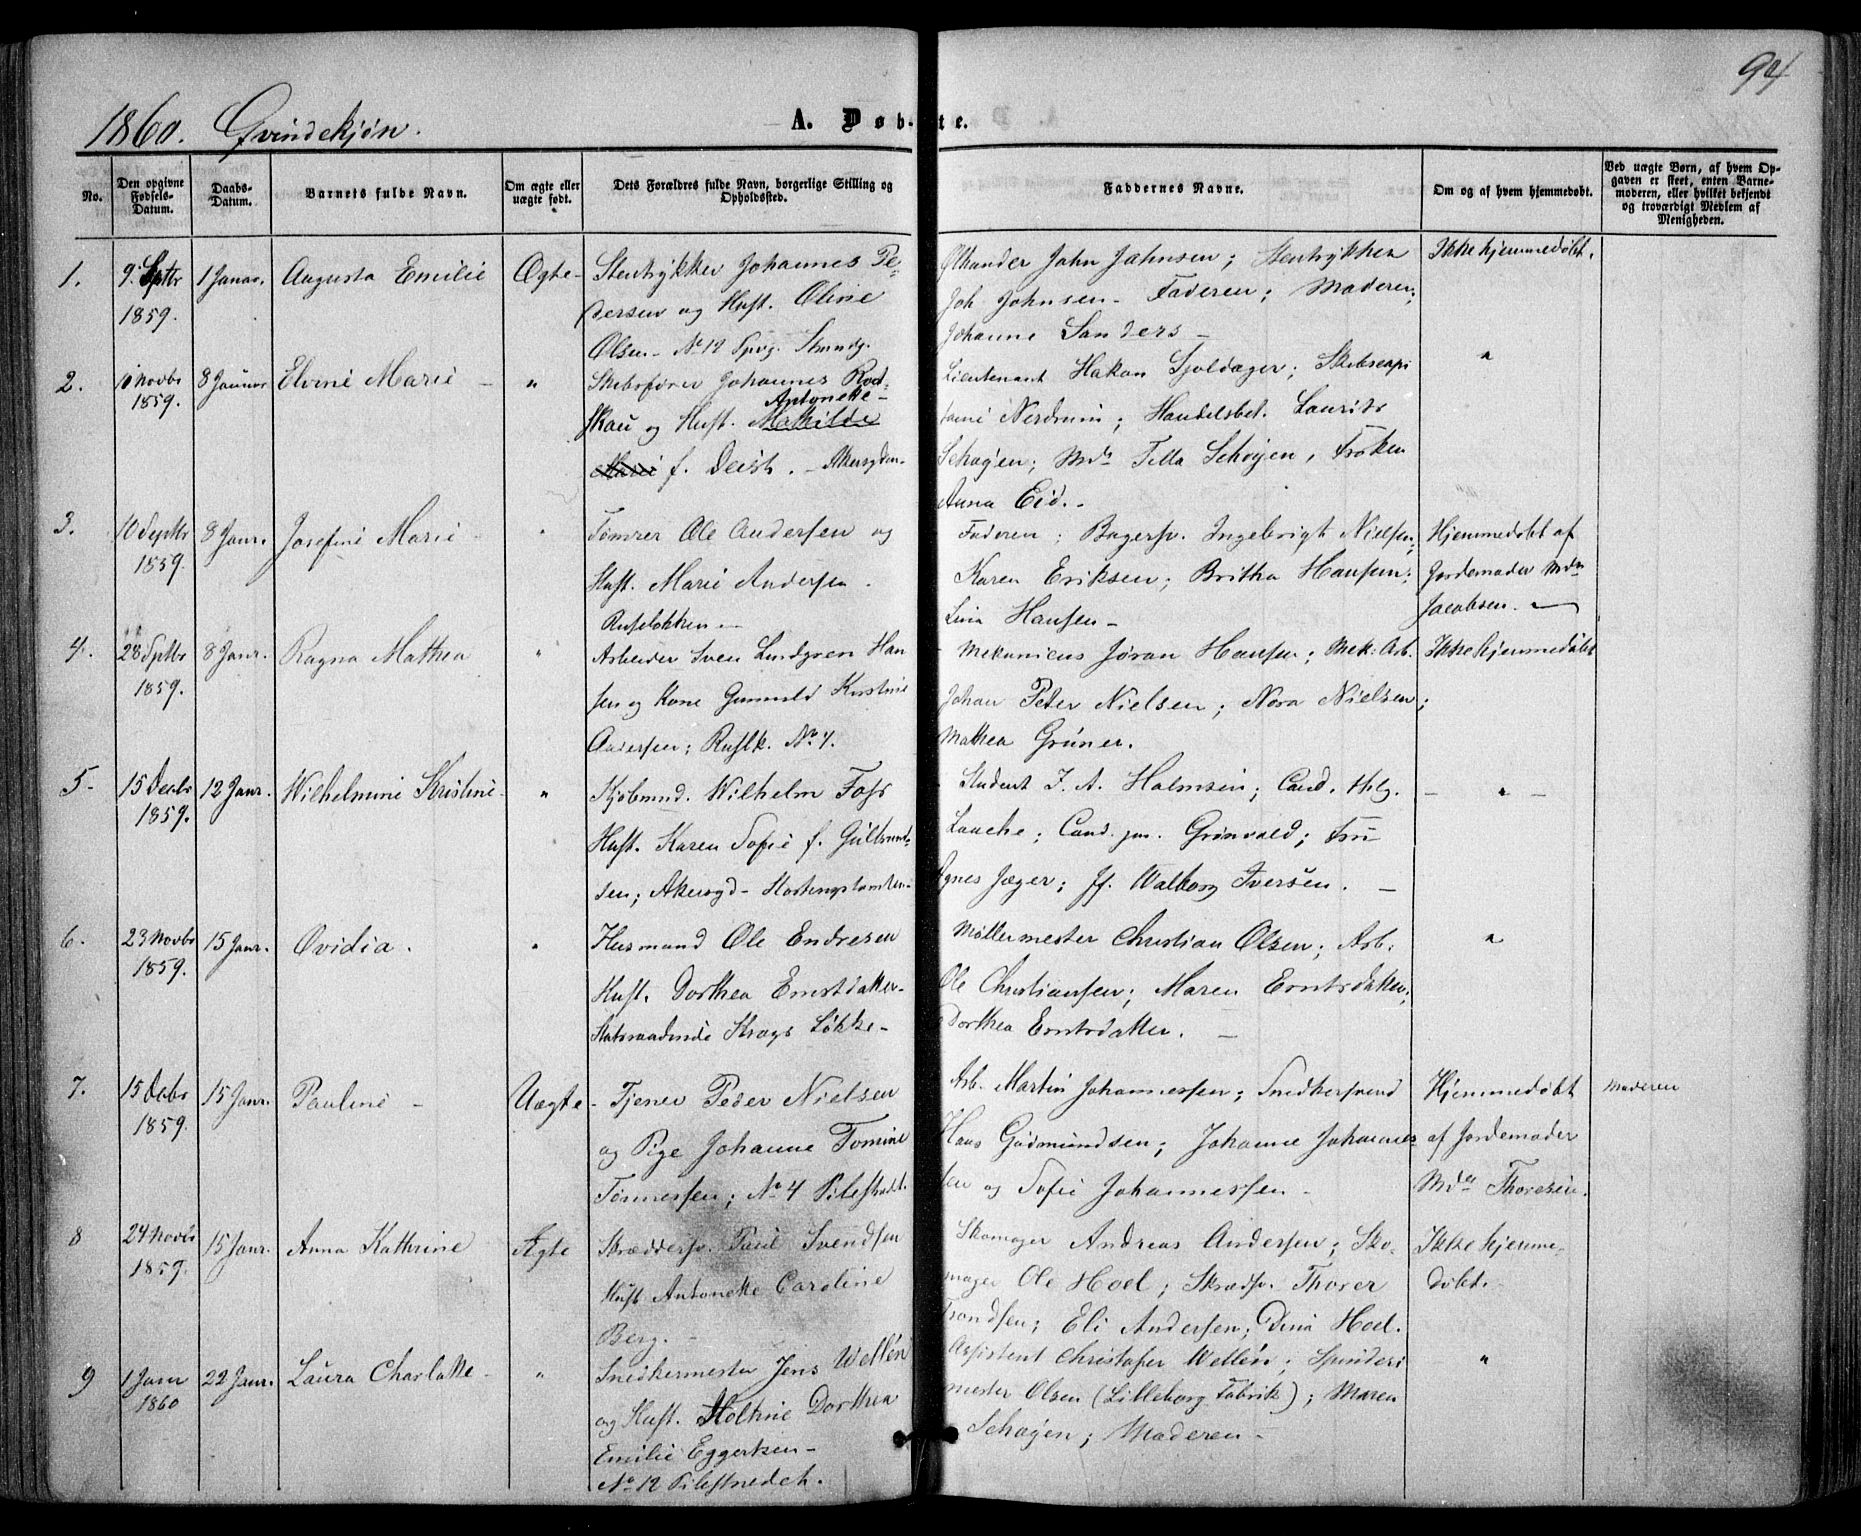 94
1860. Qvindekjøn.
A. Døbte.
No.
Den opgivne Fødsels-Datum.
Daabs-Datum.
Barnets fulde Navn.
Om ægte eller uægte født.
Dets Forældres fulde Navn, borgerlige Stilling og Opholdssted.
Faddernes Navne.
Om og af hvem hjemmedøbt.
Ved uægte Børn, af hvem Opgaven er skeet, enten Barnemoderen, eller hvilket bekjendt og troværdigt Medlem af Menigheden.
1. 9. Septbr 1859. 1 Januar. Augusta Emilie Ægte-
Stentrykker Johannes Pe-
dersen og Hust. Oline
Olsen - No 12
John Jahnsen; Stentrykker
Joh Johnsen - Faderen; Moderen;
Johanne Sanders -
Ikke hjemmedøbt.
2. Novbr 1859. 8 Januar Elvine Marie - "
Skibsfører Johannes Rod-
Antonette-
skau og Hust. Mathilde
Marie f. Deist. -
Lieutenant Hakon Sjoldager; Skibscapi
taine Nerdrum; Handelsbet. Laurits
Schøjen; Md. Tilla Schøjen, Frøken
Anna Eid. -
"
3. 10 Septbr 1859. 8 Janr. Josefine Marie "
Tømrer Ole Andersen og
Hust. Marie Andersen.
Ruseløkken -
Faderen; Bagersv. Ingebrigt Nielsen;
Karen Eriksen; Britha Hansen;
Lina Hansen -
Hjemmedøbt af
Jordemoder Mdm
Jacobsen. -
4. 28 Septbr 1859. 8 Janr. Ragna Mathea "
Arbeider Sven Lundgren Han
sen og Kone Gunnild Kirstine
Andersen; Ruslk. No 4.
Mekanicus Jøran Hansen; Mek: Arb.
Johan Peter Nielsen; Nora Nielsen;
Mathea Grüner.
Ikke hjemmedøbt
5 - 15 Decbr 1859. 12 Janr. Wilhelmine Kristine - "
Kjøbmnd. Wilhelm Foss
Hust. Karen Sofie f. Gulbrand-
sen; Akersgd -
Student I. A. Holmsen; Cand. thlg.
Laache; Cand. jur. Grønvold; Fru
Agnes Jæger; Jf. Walborg Iversen. -
- " -
6. 23 Novbr 1859. 15 Janr. Ovidia. "
Husmand Ole Endresen
Hust. Dorthea Ernstdatter -
Statsraadinde Krogs Løkke -
Møllermester Christian Olsen; Arb.
Ole Christiansen; Maren Erntsdatter;
Dorthea Erntsdatter. -
"
7. 15 Decbr 1859. 15 Janr. Pauline - Uægte -
Tjener Peder Nielsen
og Pige Johanne Tomine
Tønnessen; No 4 Pilestrædt.
Arb. Martin Johannessen; Snedkersvend
Hans Gudmundsen; Johanne Johannes
sen og Sofie Johannessen -
Hjemmedøbt
af Jordemoder
Mdm Thoresen.
Moderen
8 24 Novbr 1859. 15 Janr. Anna Kathrine Ægte
Skræddersv. Paul Svendsen
Hust Antonette Caroline
Berg. -
Skomager Andreas Andersen; Sko-
mager Ole Hoel; Skrædsv. Thorer
Trondsen; Eli Andersen; Dina Hoel.
Ikke hjemme-
døbt.
9 1 Janr 1860 22 Janr. Laura Charlotte - "
Snedkermester Jens Wellén
og Hust. Holtine Dorthea
Emilie Eggertsen -
No 12 Pilestrædet.
Assistent Christofer Wellén; Spinderi
mester Olsen (Lilleborg Fabrik); Maren
Schøjen; Moderen -
"